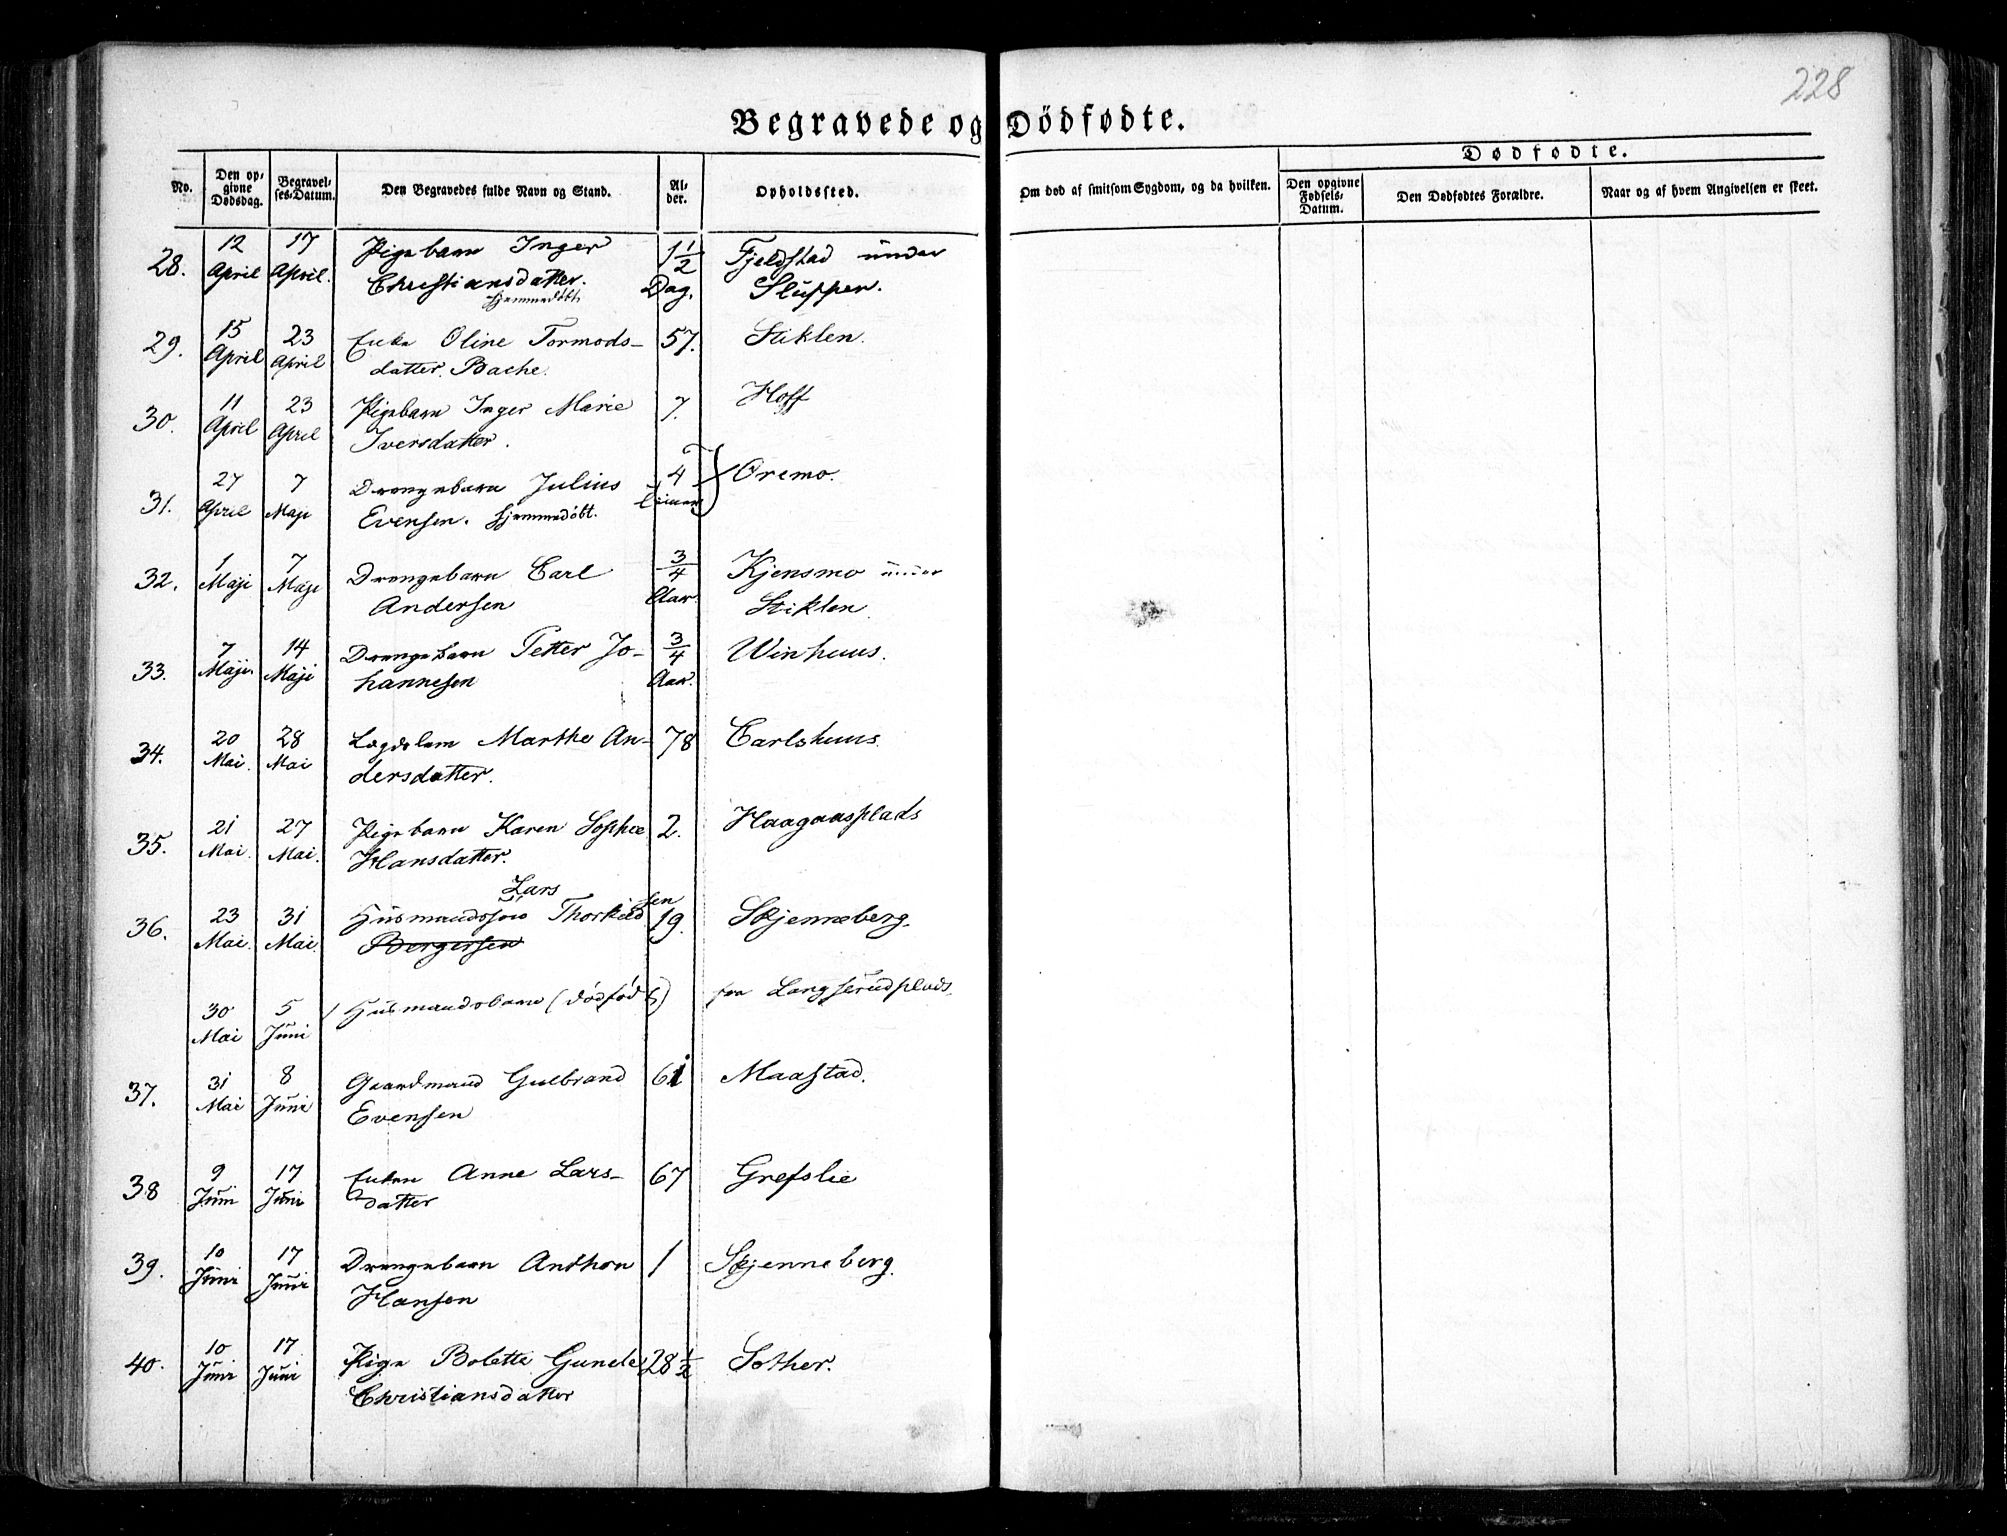 228
Begravede og Dödfødte.
No.
Den op-
givne
Dødsdag.
Begravel-
ses-Datum.
Den Begravedes fulde Navn og Stand.
Al-
der.
Opholdssted.
Om død af smitsom Sygdom, og da hvilken.
Dødfødte.
Den opgivne
Fødsels-
Datum.
Den Dødfødtes Forældre.
Naar og af hvem Angivelsen er skeet.
28. 12 April 17 April. Pigebarn Inger 1½ Fjeldstad under
Christiansdatter. Dag. Slupper.
Hjemmedøbt
29. 15 April 23 April Enke Oline Tormods- 57. Stiklen.
datter Bache.
30. 11 April 23 April Pigebarn Inger Marie 7. Hoff
Iversdatter.
31. 27 April 7 Maji Drengebarn Julius 4 Oremo.
Evensen. Hjemmedøbt.
32. 1 Maji 7 Maji Drengebarn Carl 3/4 Kjensmo under
Andersen Aar. Stiklen.
33. 7 Maji. 14 Maji Drengebarn Petter Jo- 3/4 Winhuus.
hannesen Aar.
34. 20 Mai. 28 Mai Lægdslem Marthe An- 78 Carlshuus.
dersdatter.
35. 21 Mai. 27 Mai. Pigebarn Karen Sophie 2. Haagaasplads
Hansdatter.
Lars
36. 23 Mai. 31 Mai. Huusmandssøn Thorkildsen 19. Skjenneberg.
Bergersen
30 Mai 5 Juni 1 Husmandsbarn (dödföd) fra Langserudplads.
37. 31 Mai 8 Juni Gaardmand Gulbrand 61 Maastad.
Evensen
38 9 Juni 17 Juni Enken Anne Lars- 67 Grefslie
datter
39. 10 Juni 17 Juni Drengebarn Anthon 1 Skjenneberg.
Hansen
40. 10 Juni 17 Juni Pige Bolette Gunele 28½ Sother.
Christiansdatter